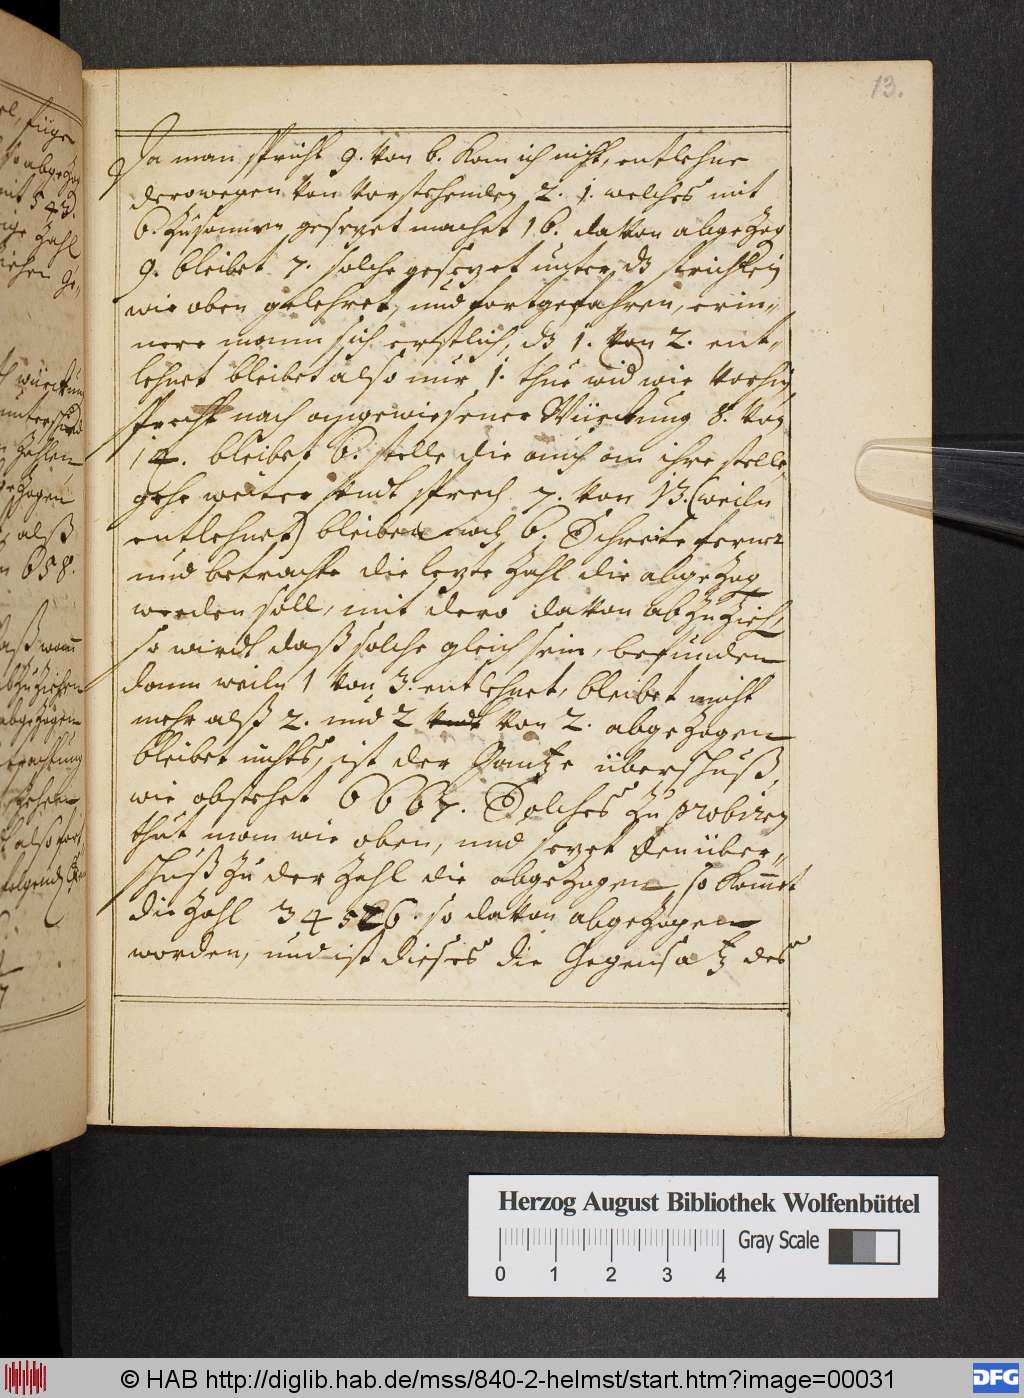 13.
Da man spricht 9. von 6. kan ich nicht, entlehne
derowegen von vorstehenden 2. 1. welches mit
6. zusammen gesezet machet 16. davon abgezog
9. bleibet 7. solche gesezet unter dz strichlein
wie oben gelehret, und fortgefahren, erin-
nere mann sich erstlich, dz 1. von 2. ent-
lehnet bleibet also nur 1. thue wid wie vorhin
sprech nach angewiesener Würckung 8. von
14. bleibet 6. stelle die auch an ihre stelle,
gehe weiter undt sprech 7. von 13. (weiln
entlehnet) bleiben noch 6. Schreite ferner
und betrachte die lezte Zahl die abgezog
werden soll, mit dero davon abzuzieh,
so wirdt daß solche gleich sein, befunden
dann weiln 1 von 3. entlehnet, bleibet nicht
mehr alß 2. und 2 von 2. abgezogen
bleibet nichts, ist der Gantze überschuß,
wie obstehet 6667. Solches zu probiren
thut man wie oben, und sezet den über-
schuß zu der Zahl die abgezogen, so kommet
die Zahl so davon abgezogen
worden, und ist dieses die Gegensatz des
Herzog August Bibliothek Wolfenbüttel
Gray Scale
0 1 2 3 4
© HAB http://diglib.hab.de/mss/840-2-helmst/start.htm?image=00031
DFG